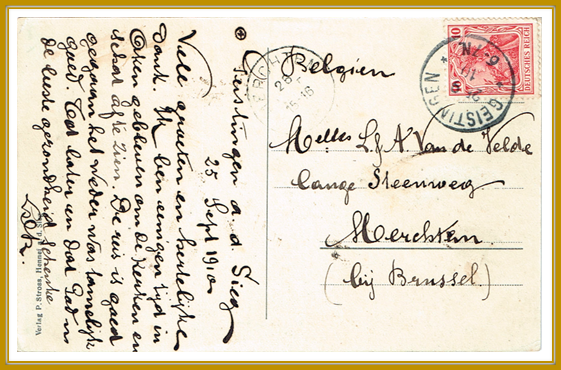 Geistingen a. d. Sieg
25 Sept 1910
Vele groeten en hertelijke
dank. Ik ben eenigen tijd in
gebleven om de kerken en
schat af te zien. De reis is goed
gegaan het weder was tamelijk
goed. Tot later en dat God u
de beste gezondheid schenke
Verlag P. Stross, Hennef
Belgien
DEUTSCHES REICH
10
GEISTINGEN
Melles L. & A. Van de Velde
Lange Steenweg
Merchtem
(bij Brussel.)